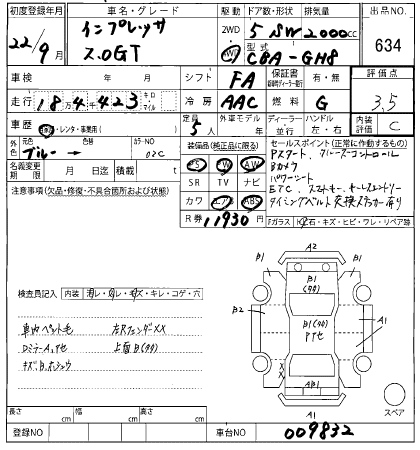 初度登録年月 車名・グレード 駆動 ドア数・形状 排気量 出品NO.
22/9月 インプレッサ 2.0GT 2WD 4WD 5 SW 2000cc 634
型式 CBA-GH8
車検 年 月 シフト FA 保証書 有・無 評価点
走行 18万4千423 キロ マイル 冷房 AAC 燃料 G 3.5
車歴 自家・レンタ・事業用( ) 定員 5人 外車モデル 年 ディーラー 並行 ハンドル 左・右 内装 C
外色 元色 ブルー → 色 カラーNO 02C
装備品(純正品に限る) セールスポイント(正常に作動するもの)
名義変更期限 月 日迄 積載 t
PS PW AW
SR TV ナビ
カワ エアB ABS
R券 11930円
Pスタート、クルーズコントロール
Bカメラ
パワーシート
ETC、スマートキー、キーレスエントリー
タイミングベルト交換ステッカー有り
Fガラス ヒ石・キズ・ヒビ・ワレ・リペア跡
注意事項(欠品・修復・不具合箇所および状態)
検査員記入 内装 汚レ・スレ・キズ・キレ・コゲ・穴
車内ペット毛 左RフェンダXX
DミラーA、其他 上面B(タタ)
キズB、ホシュウ
A2
B1 B1(タタ) B1
B2 B1(タタ) P其他 A1
X X
AB1
A1
スペア
長さ cm 幅 cm 高さ cm
登録NO 車台NO 009832